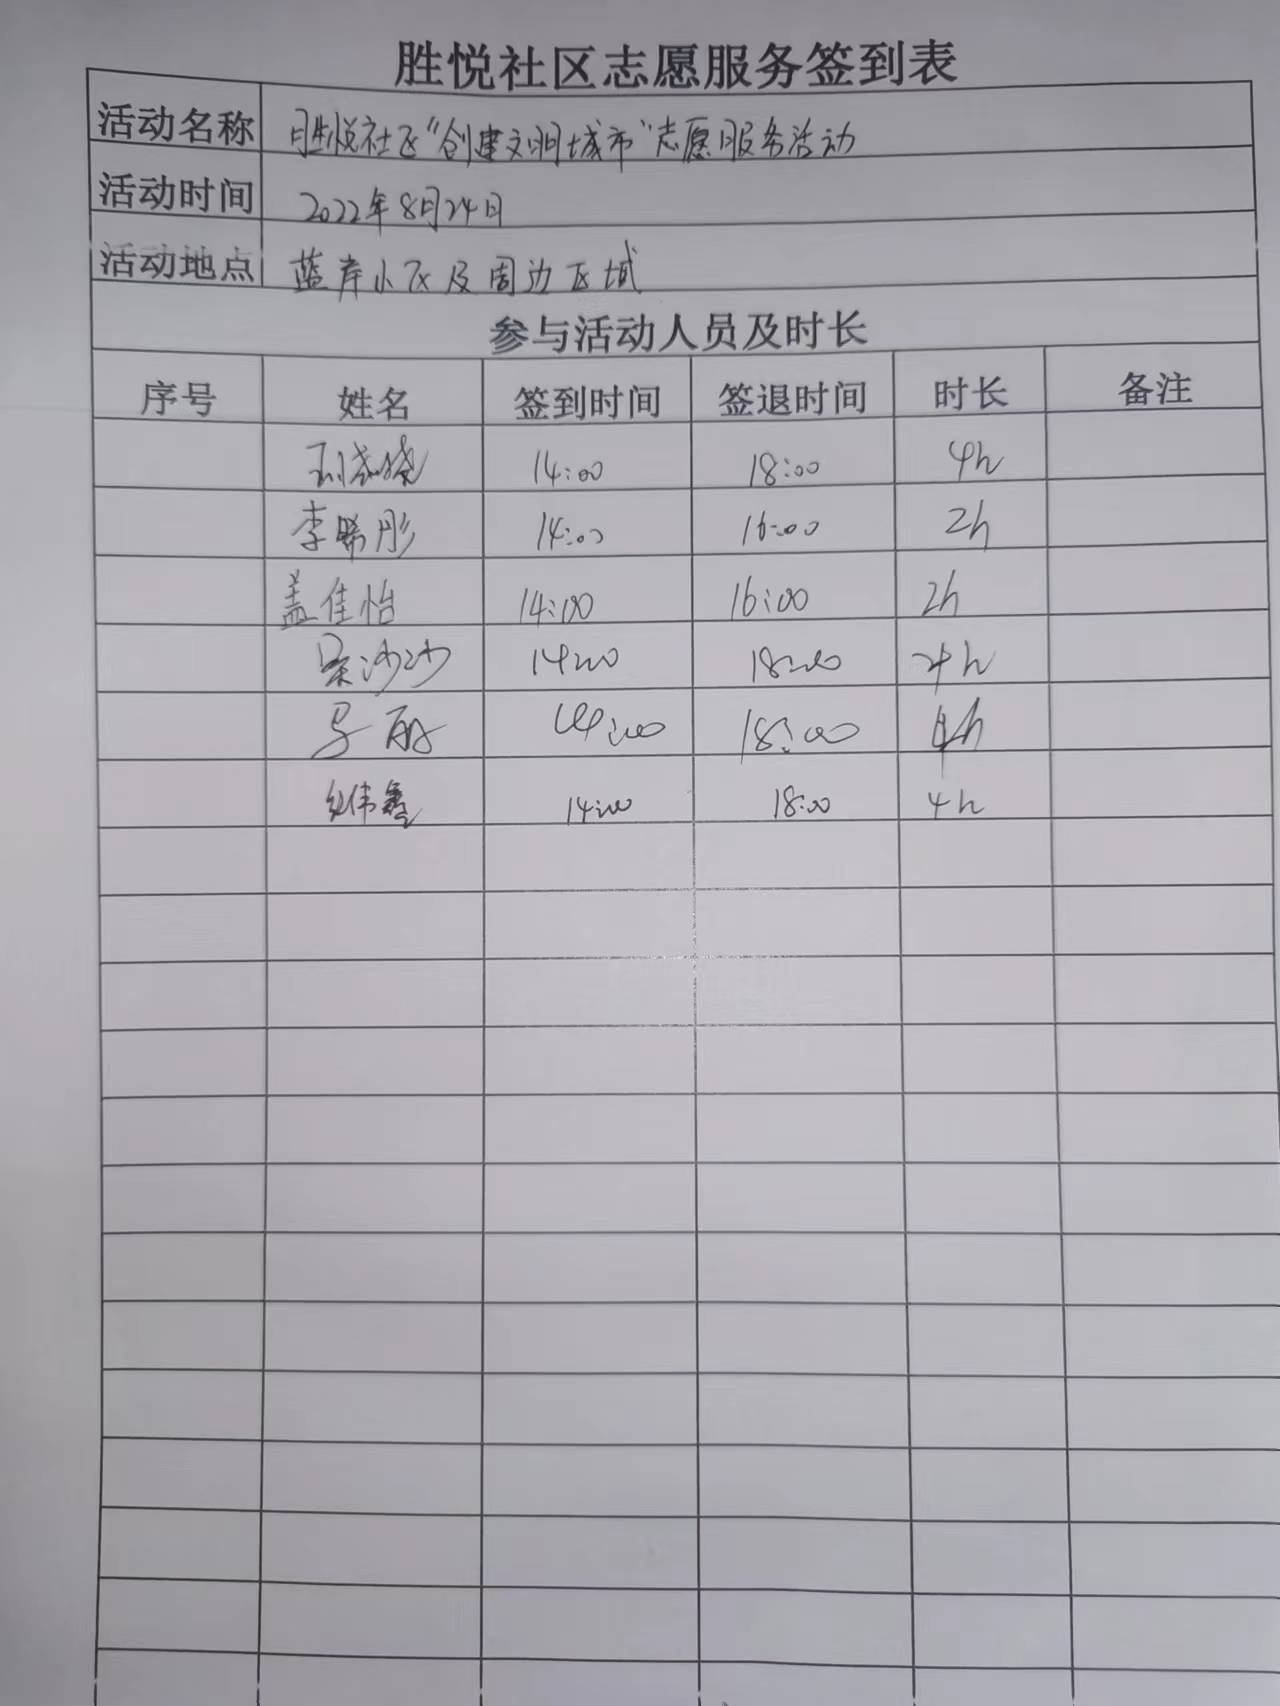 胜悦社区志愿服务签到表
活动名称 胜悦社区“创建文明城市”志愿服务活动
活动时间 2022年8月24日
活动地点 蓝岸小区及周边区域
参与活动人员及时长
序号 姓名 签到时间 签退时间 时长 备注
14:00 18:00 4h
李晞彤 14:00 16:00 2h
盖佳怡 14:00 16:00 2h
沙沙 14:00 18:00 4h
14:00 18:00 4h
伟鑫 14:00 18:00 4h